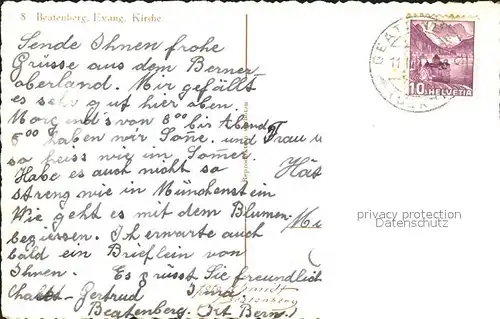 8 Beatenberg, Evang. Kirche.
Sende Ihnen frohe
Grüsse aus dem Berner-
oberland. Mir gefällt
es sehr guf hier oben.
Morgends von 8⁰⁰ bis Abend
5⁰⁰ haben wir Soñe. und
so heiss wie im Som̃er.
Habe es auch nicht so
streng wie in Münchenstein
Wie geht es mit dem Blumen
begiessen. Ich erwarte auch
bald ein Brieflein von
Ihnen. Es grüsst Sie freundlich
Gertrud
Beatenberg. (Kt Bern)
Frau
10 HELVETIA
privacy protection
Datenschutz